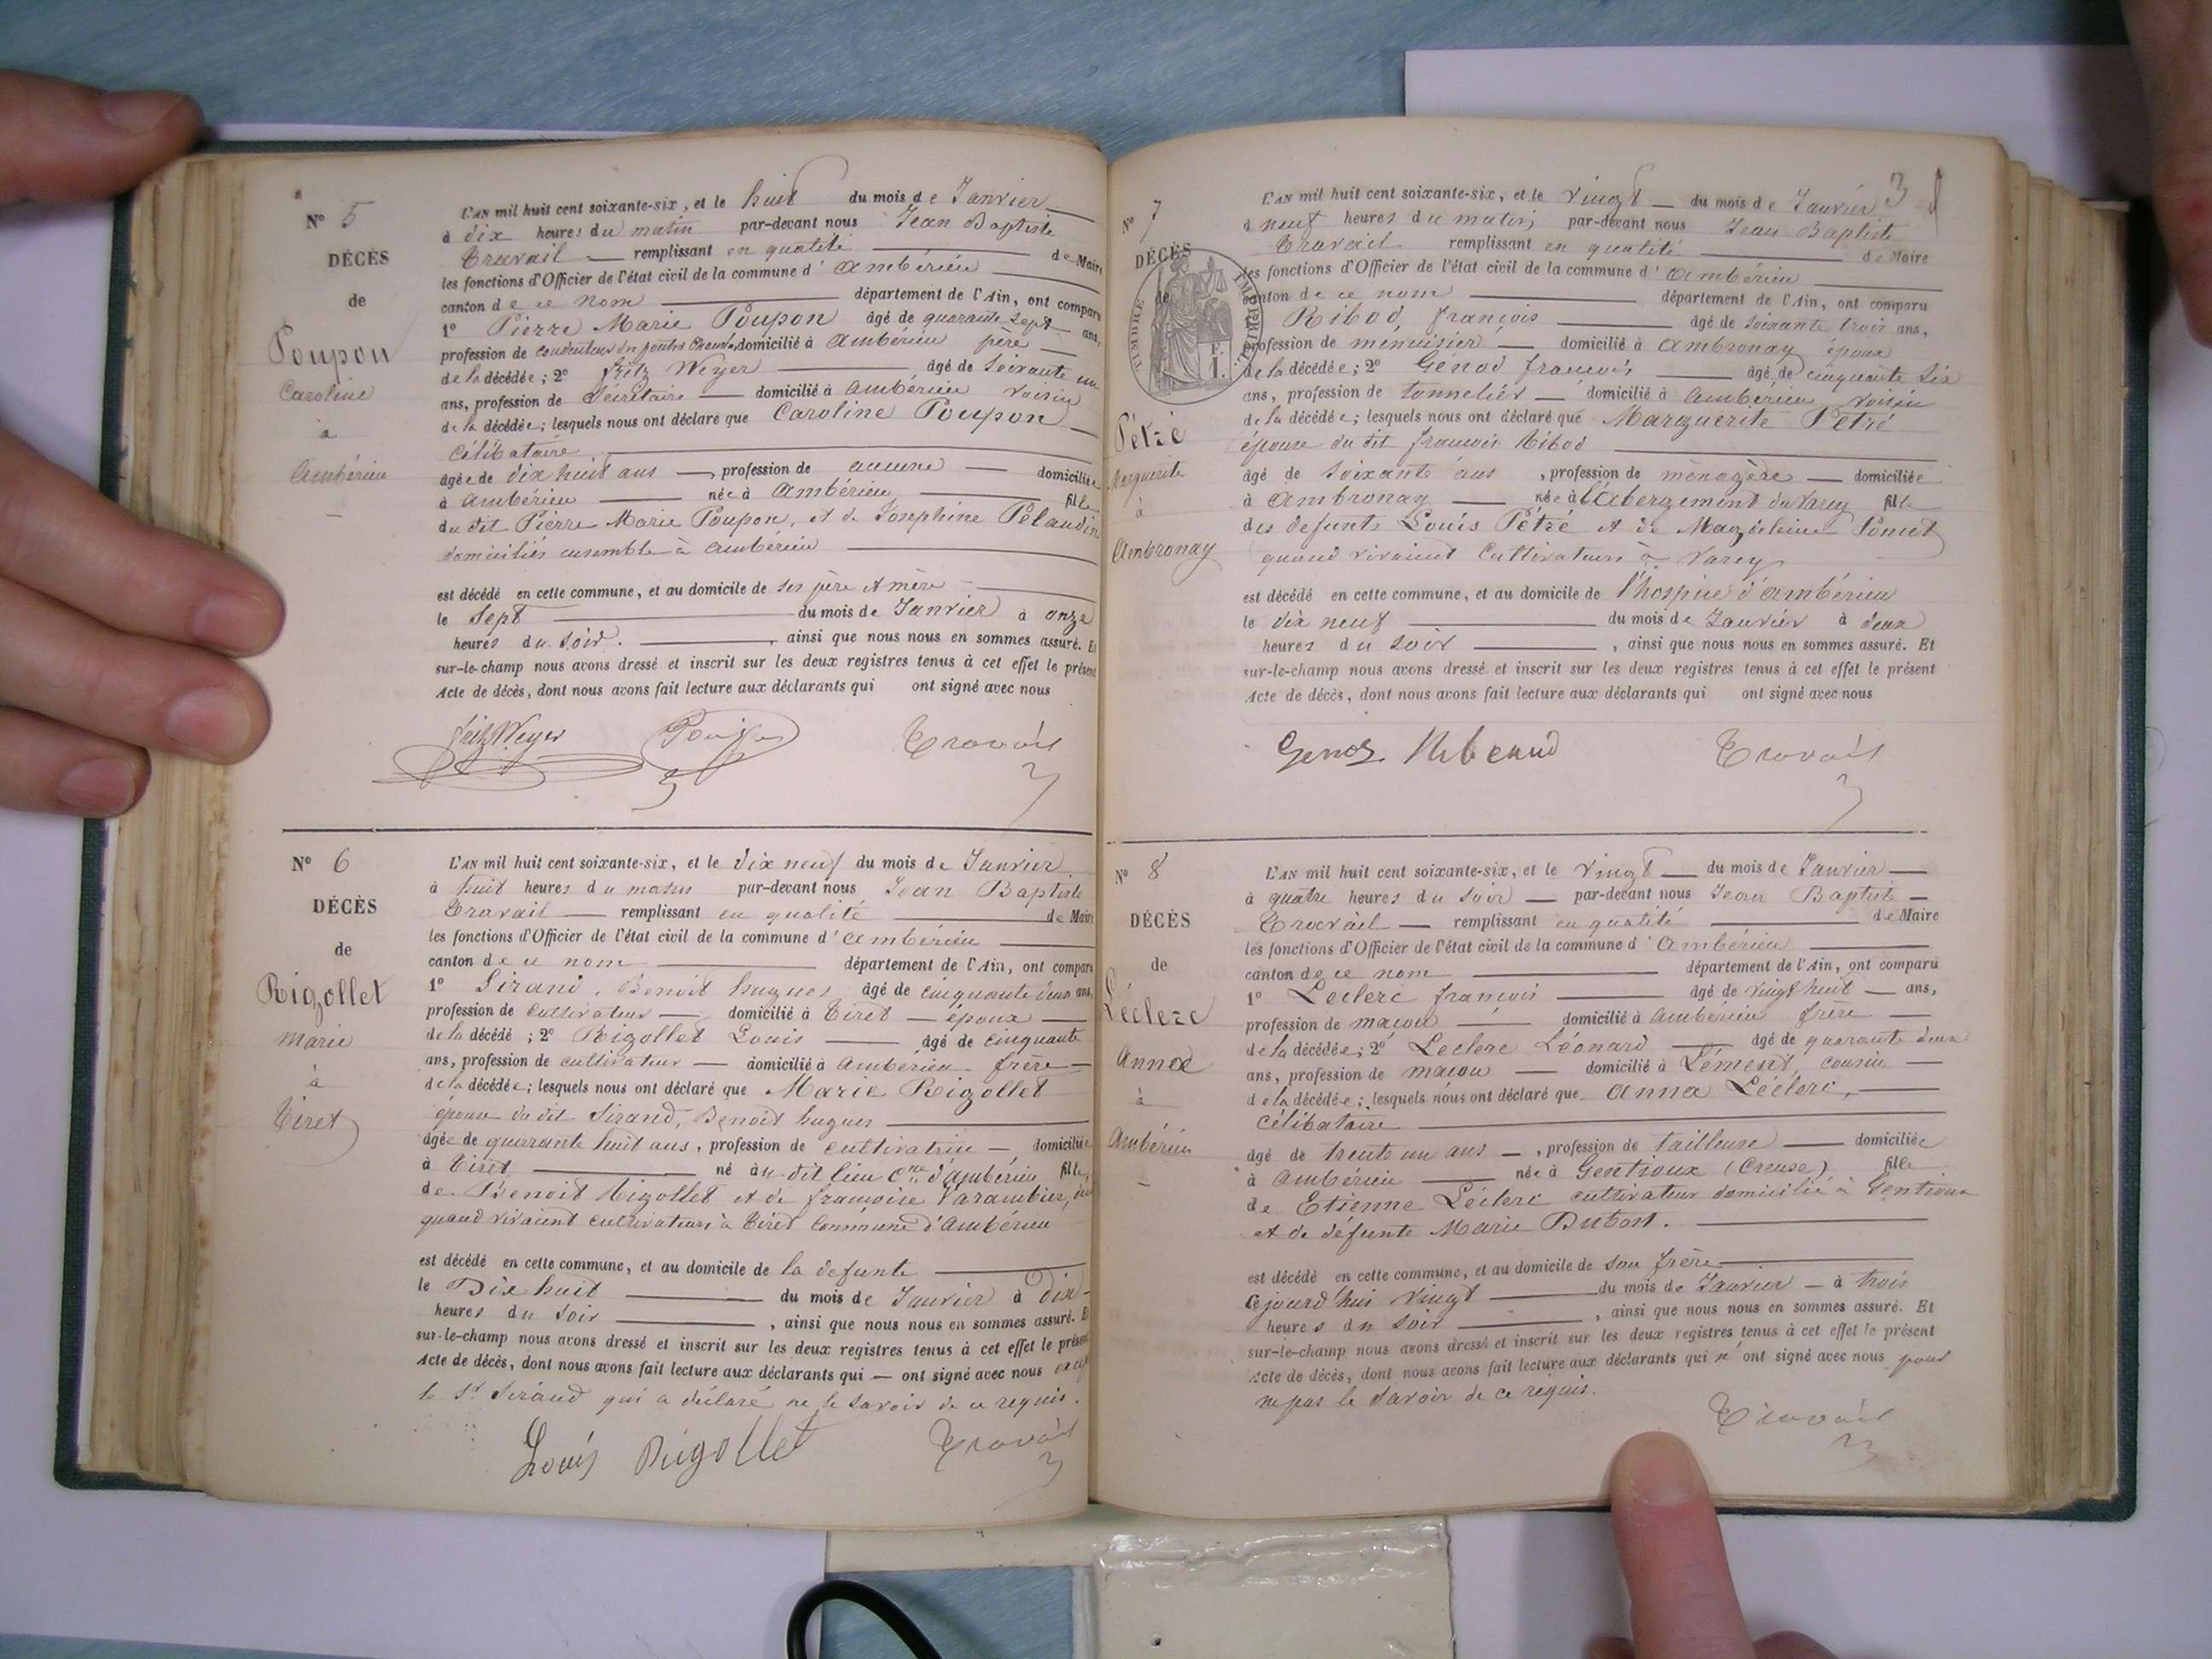 N° 5
DÉCÈS
de
Poupon
Caroline
à
Ambérieu
L'AN mil huit cent soixante-six, et le huit du mois de Janvier
à dix heures du matin par-devant nous Jean Baptiste
Travail remplissant en qualité de Maire
les fonctions d'Officier de l'état civil de la commune d'Ambérieu
canton de ce nom département de l'Ain, ont comparu
1° Pierre Marie Poupon âgé de quarante sept ans,
profession de conducteur des ponts domicilié à Ambérieu père
de la décédée; 2° Fritz Weyer âgé de soixante un
ans, profession de Secrétaire domicilié à Ambérieu voisin
de la décédée; lesquels nous ont déclaré que Caroline Poupon
célibataire
âgée de dix huit ans, profession de aucune domiciliée
à Ambérieu née à Ambérieu fille
du dit Pierre Marie Poupon, et de Josephine Pélaudin
domiciliés ensemble à Ambérieu
est décédé en cette commune, et au domicile de ses père et mère
le Sept du mois de Janvier à onze
heures du soir, ainsi que nous nous en sommes assuré. Et
sur-le-champ nous avons dressé et inscrit sur les deux registres tenus à cet effet le présent
Acte de décès, dont nous avons fait lecture aux déclarants qui ont signé avec nous
Fritz Weyer Poupon Travail
N° 6
DÉCÈS
de
Rigollet
Marie
à
Tiret
L'AN mil huit cent soixante-six, et le dix neuf du mois de Janvier
à huit heures du matin par-devant nous Jean Baptiste
Travail remplissant en qualité de Maire
les fonctions d'Officier de l'état civil de la commune d'Ambérieu
canton de ce nom département de l'Ain, ont comparu
1° Sirand, Benoit hugues âgé de cinquante deux ans,
profession de cultivateur domicilié à Tiret époux
de la décédé; 2° Rigollet Louis âgé de cinquante
ans, profession de cultivateur domicilié à Ambérieu frère
de la décédée; lesquels nous ont déclaré que Marie Rigollet
épouse du dit Sirand, Benoit hugues
âgée de quarante huit ans, profession de cultivatrice domiciliée
à Tiret né au dit lieu Cne d'Ambérieu fille
de Benoit Rigollet et de françoise Varambier,
quand vivaient cultivateurs à Tiret Commune d'Ambérieu
est décédé en cette commune, et au domicile de la defunte
le Dix huit du mois de Janvier à dix
heures du soir, ainsi que nous nous en sommes assuré. Et
sur-le-champ nous avons dressé et inscrit sur les deux registres tenus à cet effet le présent
Acte de décès, dont nous avons fait lecture aux déclarants qui — ont signé avec nous
le Sr Sirand qui a déclaré ne le savoir de ce requis.
Louis Rigollet Travail
3
N° 7
DÉCÈS
de
TIMBRE IMPÉRIAL
F.
1.
Pétré
Marguerite
à
Ambronay
L'AN mil huit cent soixante-six, et le vingt du mois de Janvier
à neuf heures du matin, par-devant nous Jean Baptiste
Travail remplissant en qualité de Maire
les fonctions d'Officier de l'état civil de la commune d'Ambérieu
canton de ce nom département de l'Ain, ont comparu
Ribod, françois âgé de soixante trois ans,
profession de menuisier domicilié à Ambronay époux
de la décédée; 2° Génod françois âgé de cinquante six
ans, profession de tonnelier domicilié à Ambérieu voisin
de la décédée; lesquels nous ont déclaré que Marguerite Pétré
épouse du dit françois Ribod
âgé de soixante ans, profession de ménagère domiciliée
à Ambronay née à l'abergement du Varey fille
des defunts Louis Pétré et de Magdeleine Poncet
quand vivaient cultivateurs à Varey
est décédé en cette commune, et au domicile de l'hospice d'Ambérieu
le dix neuf du mois de Janvier à deux
heures du soir, ainsi que nous nous en sommes assuré. Et
sur-le-champ nous avons dressé et inscrit sur les deux registres tenus à cet effet le présent
Acte de décès, dont nous avons fait lecture aux déclarants qui ont signé avec nous
Genod Ribeaud Travail
N° 8
DÉCÈS
de
Léclerc
Anna
à
Ambérieu
L'AN mil huit cent soixante-six, et le vingt du mois de Janvier
à quatre heures du soir par-devant nous Jean Baptiste
Travail remplissant en qualité de Maire
les fonctions d'Officier de l'état civil de la commune d'Ambérieu
canton de ce nom département de l'Ain, ont comparu
1° Leclerc françois âgé de vingt huit ans,
profession de maçon domicilié à Ambérieu frère
de la décédée; 2° Leclerc Léonard âgé de quarante deux
ans, profession de maçon domicilié à Lément, cousin
de la décédée; lesquels nous ont déclaré que Anna Léclerc,
célibataire
âgé de trente un ans, profession de tailleuse domiciliée
à Ambérieu née à Gentioux (Creuse) fille
de Etienne Léclerc cultivateur domicilié à Gentioux
et de défunte Marie Dubost.
est décédé en cette commune, et au domicile de son frère
cejourd'hui vingt du mois de Janvier à trois
heures du soir, ainsi que nous nous en sommes assuré. Et
sur-le-champ nous avons dressé et inscrit sur les deux registres tenus à cet effet le présent
Acte de décès, dont nous avons fait lecture aux déclarants qui n'ont signé avec nous pour
ne pas le savoir de ce requis.
Travail